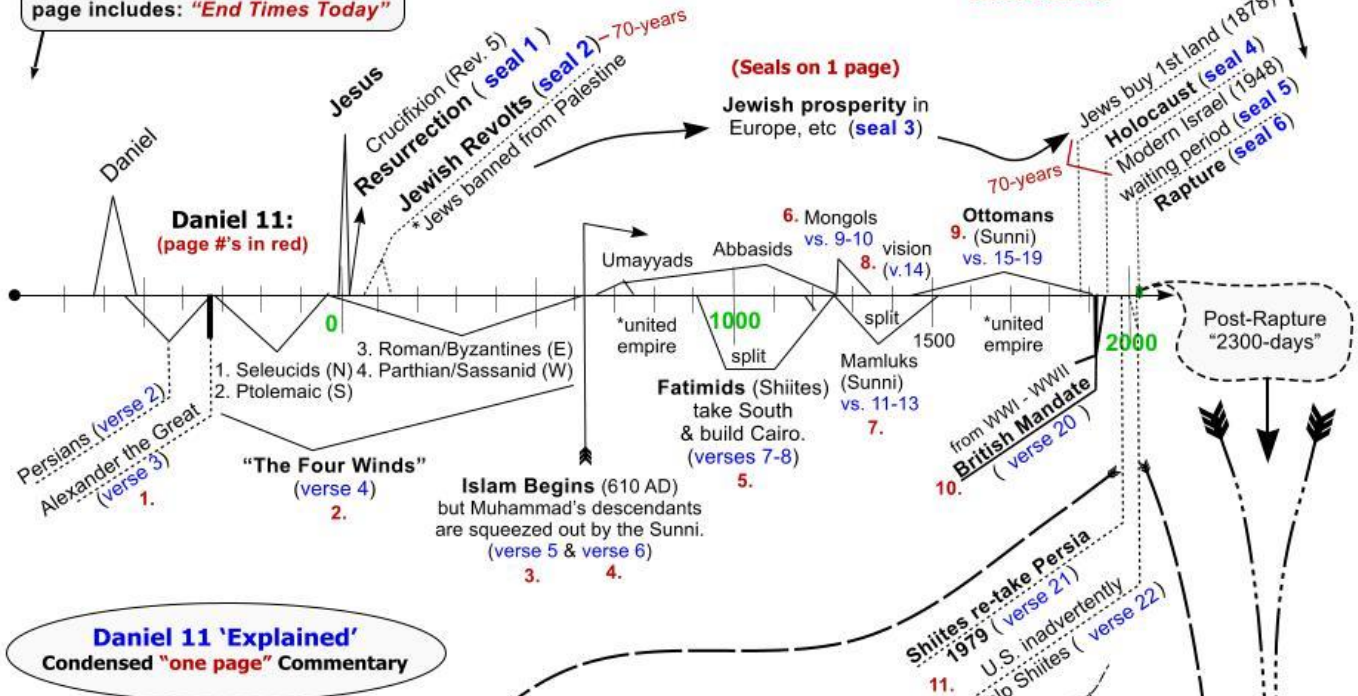 page includes: "End Times Today"
Daniel
Jesus
Crucifixion (Rev. 5)
Resurrection ( seal 1 )
Jewish Revolts (seal 2)
70-years
* Jews banned from Palestine
(Seals on 1 page)
Jewish prosperity in
Europe, etc (seal 3)
Jews buy 1st land (1878)
Holocaust (seal 4)
Modern Israel (1948)
waiting period (seal 5)
Rapture (seal 6)
70-years
Daniel 11:
(page #'s in red)
Umayyads
Abbasids
6. Mongols
vs. 9-10
8. vision
(v.14)
Ottomans
9. (Sunni)
vs. 15-19
0
*united
empire
1000
split
split
1500
*united
empire
2000
Post-Rapture
"2300-days"
1. Seleucids (N)
2. Ptolemaic (S)
3. Roman/Byzantines (E)
4. Parthian/Sassanid (W)
Persians (verse 2)
Alexander the Great
(verse 3)
1.
"The Four Winds"
(verse 4)
2.
Islam Begins (610 AD)
but Muhammad's descendants
are squeezed out by the Sunni.
(verse 5 & verse 6)
3. 4.
Fatimids (Shiites)
take South
& build Cairo.
(verses 7-8)
5.
Mamluks
(Sunni)
vs. 11-13
7.
from WWI - WWII
British Mandate
( verse 20 )
10.
Shiites re-take Persia
1979 ( verse 21)
U.S. inadvertently
Shiites ( verse 22)
11.
Daniel 11 'Explained'
Condensed "one page" Commentary